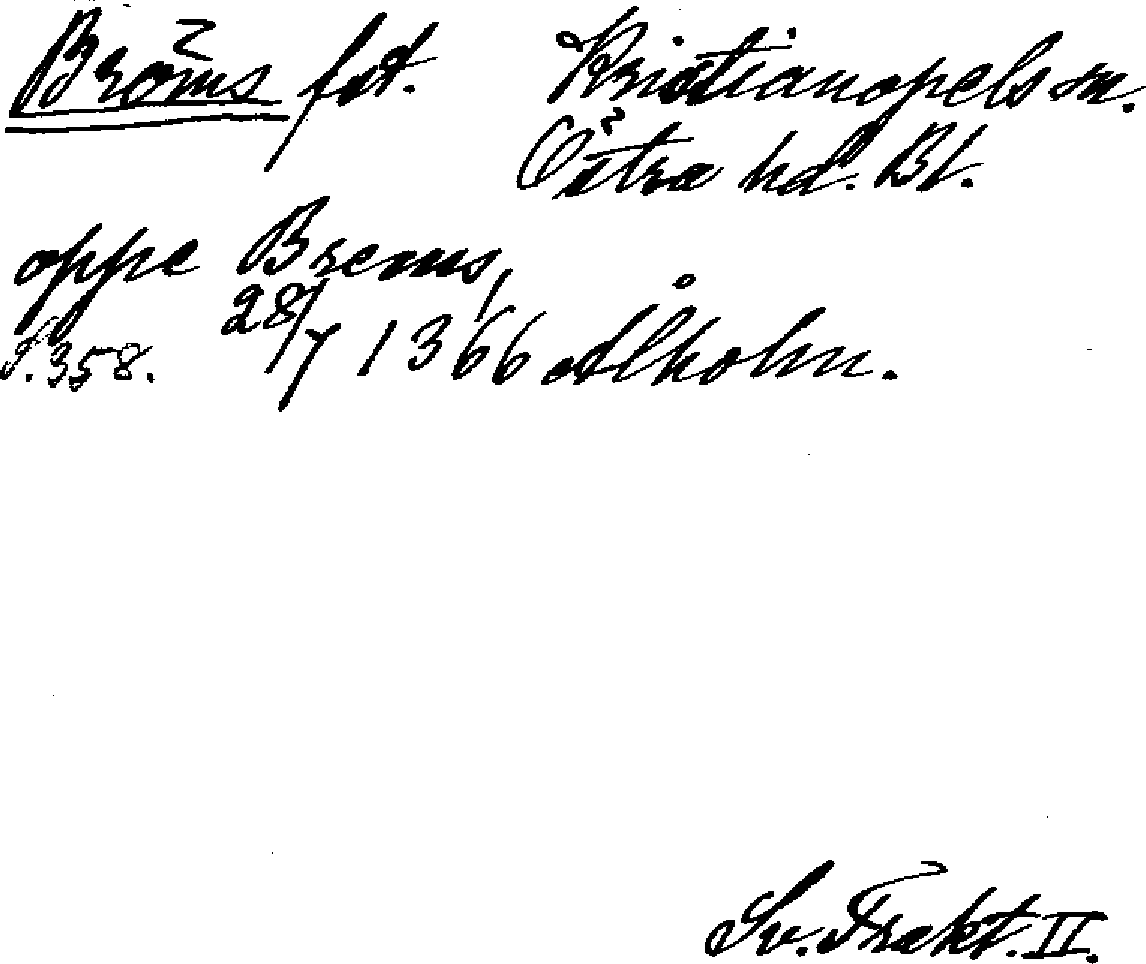 Bröms fst. Kristianopels sn.
Östra hd. Bl.
oppe Brems,
S. 358. 28/7 1366 Ålholm.
Sv. Trakt. II.